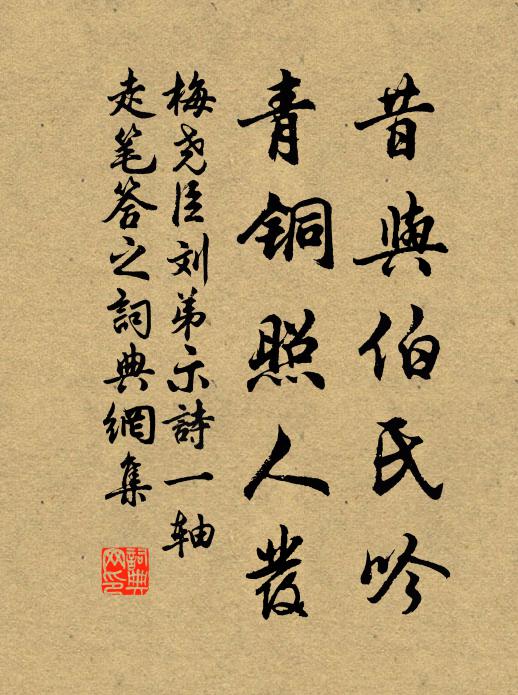 昔與伯氏吟
青銅照人發
梅堯臣刘弟示詩一轴
走笔答之詞典網集
詞典网印